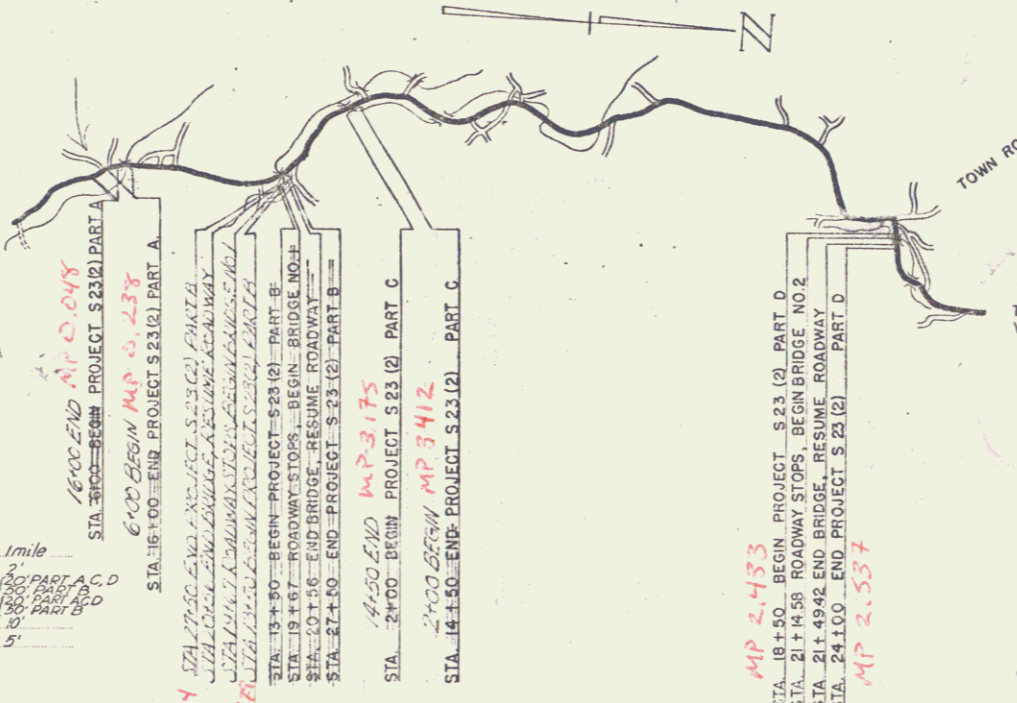 N
TOWN RO
16+00 END MP 0.048
STA. 6+00 BEGIN PROJECT S 23(2) PART A
6+00 BEGIN MP 0.238
STA. 16+00 END PROJECT S 23(2) PART A.
STA. 27+50 END PROJECT S 23(2) PART B
STA. 20+56 END BRIDGE, RESUME ROADWAY
STA. 19+67 ROADWAY STOPS, BEGIN BRIDGE NO.1
STA. 13+50 BEGIN PROJECT S 23(2) PART B
STA. 13+50 BEGIN PROJECT S 23(2) PART B
STA. 19+67 ROADWAY STOPS, BEGIN BRIDGE NO.1
STA. 20+56 END BRIDGE, RESUME ROADWAY
STA. 27+50 END PROJECT S 23(2) PART B
14+50 END MP 3.175
STA. 2+00 BEGIN PROJECT S 23(2) PART C
2+00 BEGIN MP 3.412
STA. 14+50 END PROJECT S 23(2) PART C
MP 2.433
STA. 18+50 BEGIN PROJECT S 23(2) PART D
STA. 21+14.58 ROADWAY STOPS, BEGIN BRIDGE NO.2
STA. 21+49.42 END BRIDGE, RESUME ROADWAY
STA. 24+00 END PROJECT S 23(2) PART D
MP 2.537
1 mile
2'
20' PART A, C, D
50' PART B
120' PART A C D
50' PART B
10'
5'